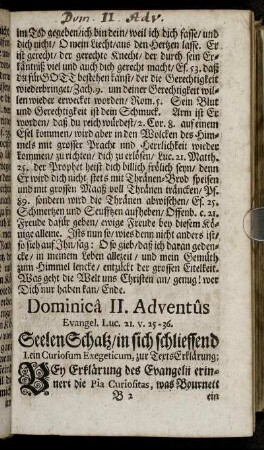 Dom. II Adv.
im Tod gegeben/ich bin dein/weil ich dich fasse/und
dich nicht/O mein Liecht/aus den Hertzen lasse. Er
ist gerecht/der gerechte Knecht/der durch sein Er-
käntnüß viel und auch dich gerecht macht/Es. 53. daß
du für GOTT bestehen kanst/der die Gerechtigkeit
wiederbringet/Zach. 9. um deiner Gerechtigkeit wil-
len wieder erwecket worden/Rom. 5. Sein Blut
und Gerechtigkeit ist dein Schmuck. Arm ist Er
worden/daß du reich würdest/2. Cor. 8. auf einem
Esel kommen/wird aber in den Wolcken des Him-
mels mit grosser Pracht und Herrlichkeit wieder
kommen/zu richten/dich zu erlösen/Luc. 21. Matth.
25. der Prophet heist dich billich frölich seyn/denn
Er wird dich nicht stets mit Thränen-Brod speisen
und mit grossen Maaß voll Thränen träncken/Ps.
89. sondern wird die Thränen abwischen/Es. 25.
Schmertzen und Seufftzen aufheben/Offenb. c. 21.
Freude dafür geben/ewige Freude bey diesem Kö-
nige alleine. Ists nun so/wies denn nicht anders ist/
so sieh auf Ihn/sag: O so gieb/daß ich daran geden-
cke/in meinem Leben allezeit/und mein Gemüth
zum Himmel lencke/entzückt der grossen Eitelkeit.
Was geht die Welt uns Christen an/genug! wer
Dich nur haben kan/Ende.
Dominicâ II. Adventûs
Evangel. Luc. 21. v. 25-36.
SeelenSchatz/in sich schliessend
I. ein Curiosum Exegeticum, zur TextsErklärung;
BEy Erklärung des Evangelii erin-
nert die Pia Curiositas, was Bournett
B 2 ein